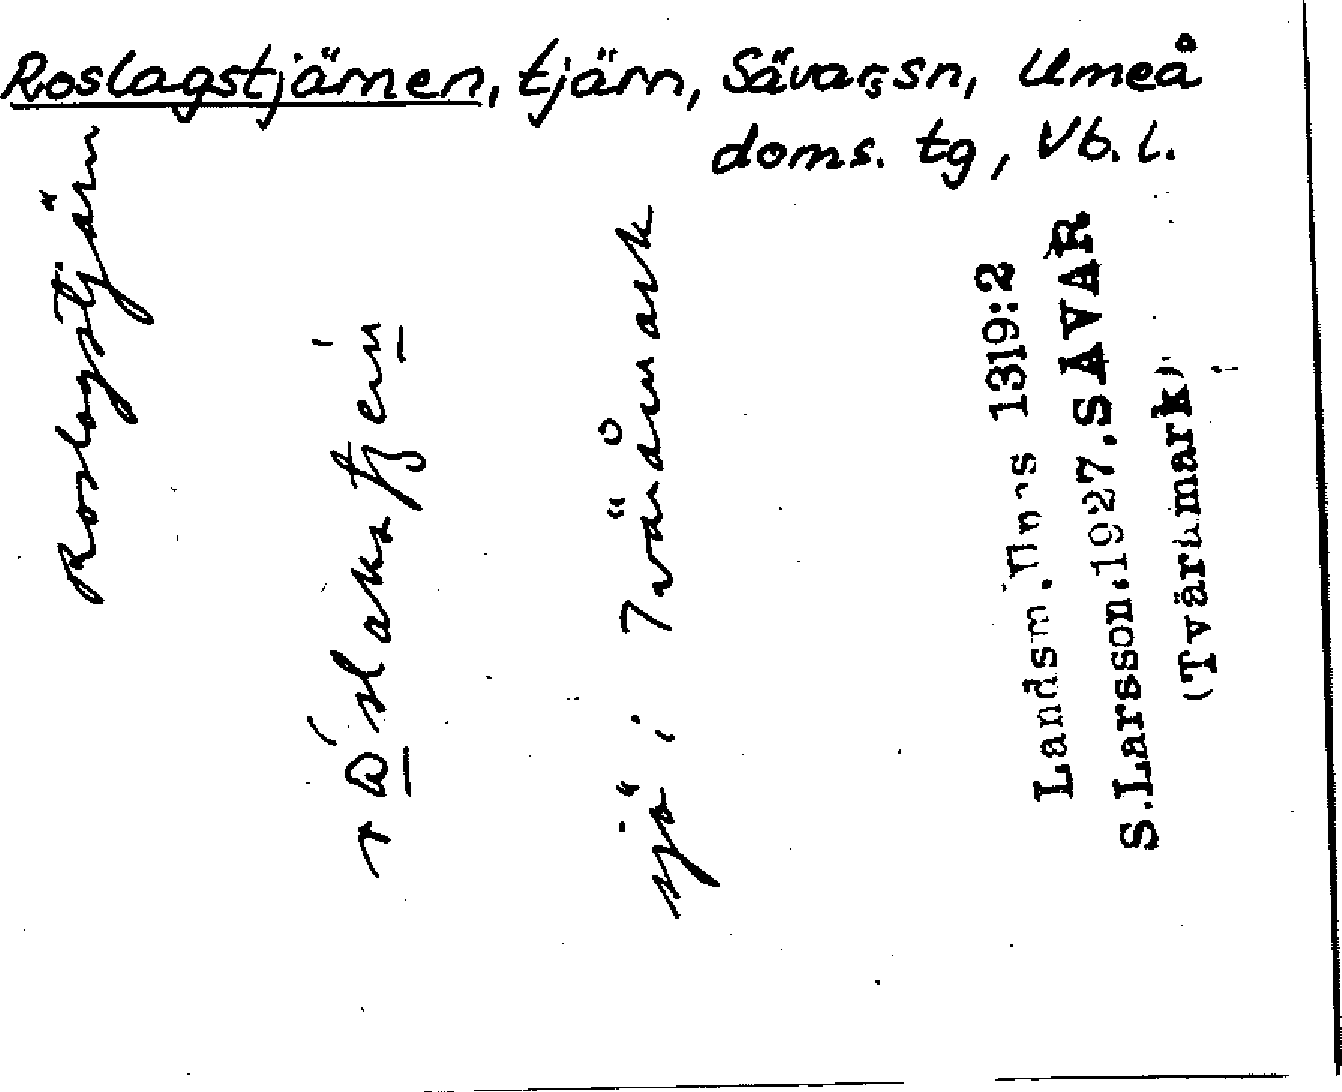 Roslagstjärnen, tjärn, Sävars sn, Umeå
doms. tg, Vb. l.
Roslagstjärn
sjö i Tväråmark
Landsm. Upps 1319:2
S.Larsson.1927.SÄVAR
(Tväråmark)